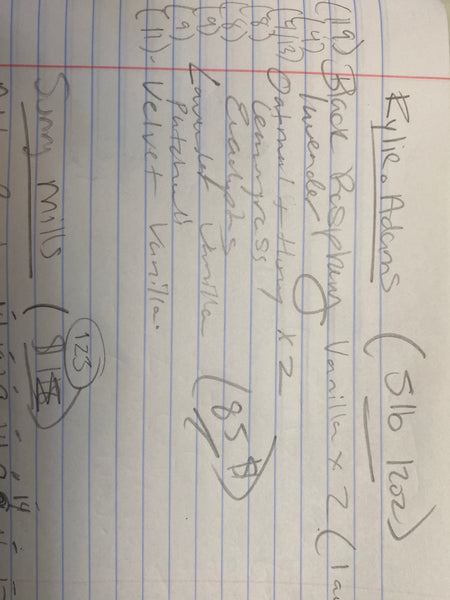 Kylie Adams (5lb 12oz)
(19) Black Raspberry Vanilla x 2 (1
lavender
Oatmeal + Hony x 2
(8) Lemongrass
(8) Eucalyptus
(9) Lavender Vanilla (85#)
(9) Patchouli
(11) - Velvet Vanilla.
123
Sunny Mills (91
14